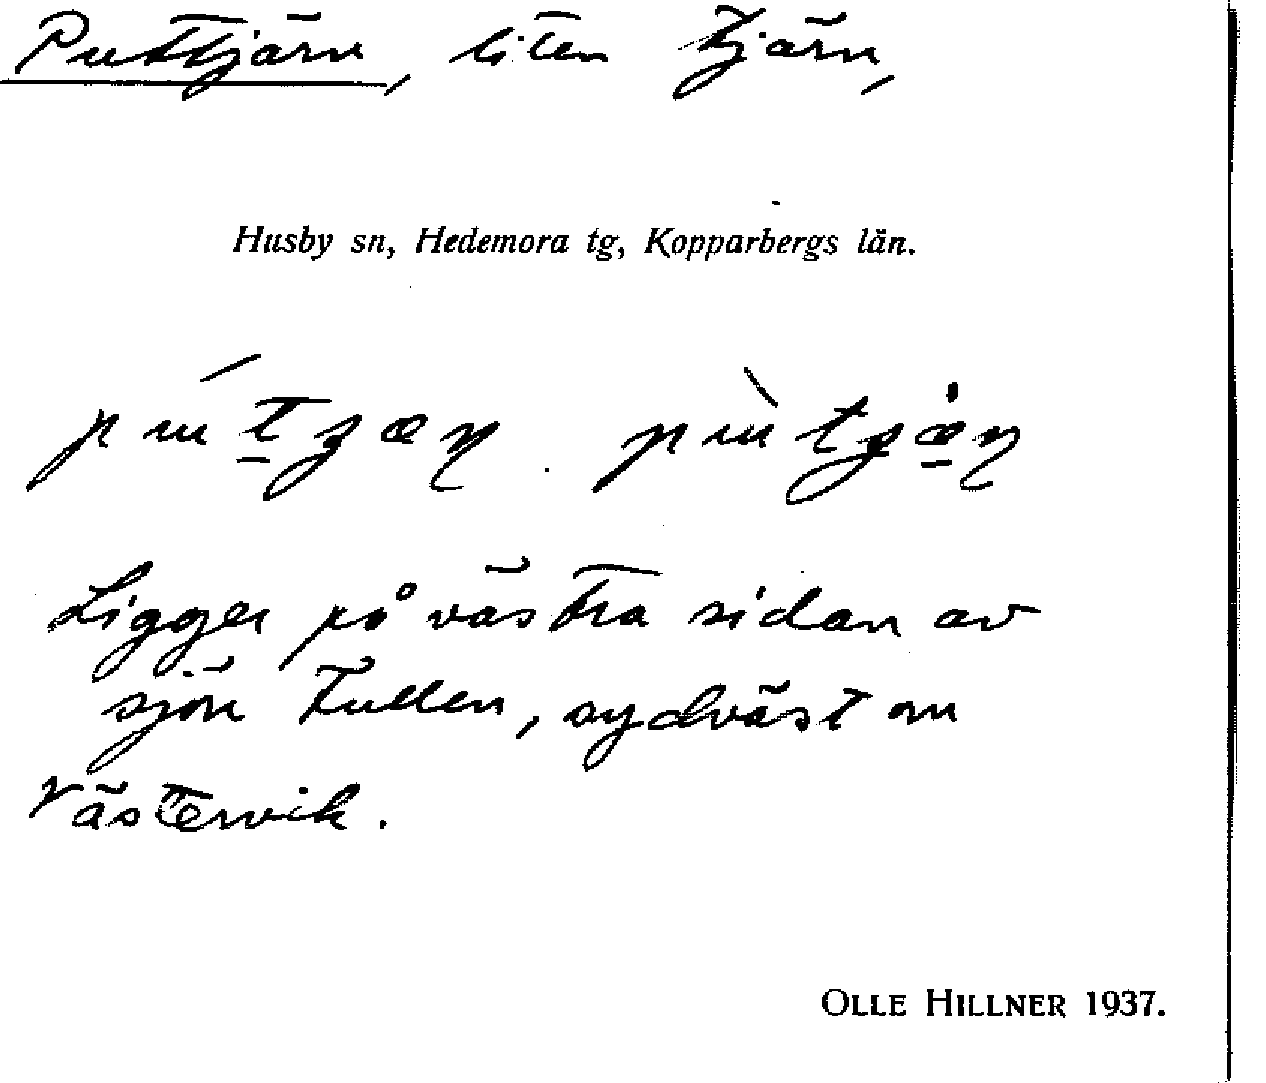 Puttjärn, liten tjärn,
Husby sn, Hedemora tg, Kopparbergs län.
Ligger på västra sidan av
sjön Fullen, sydväst om
Västervik.
OLLE HILLNER 1937.